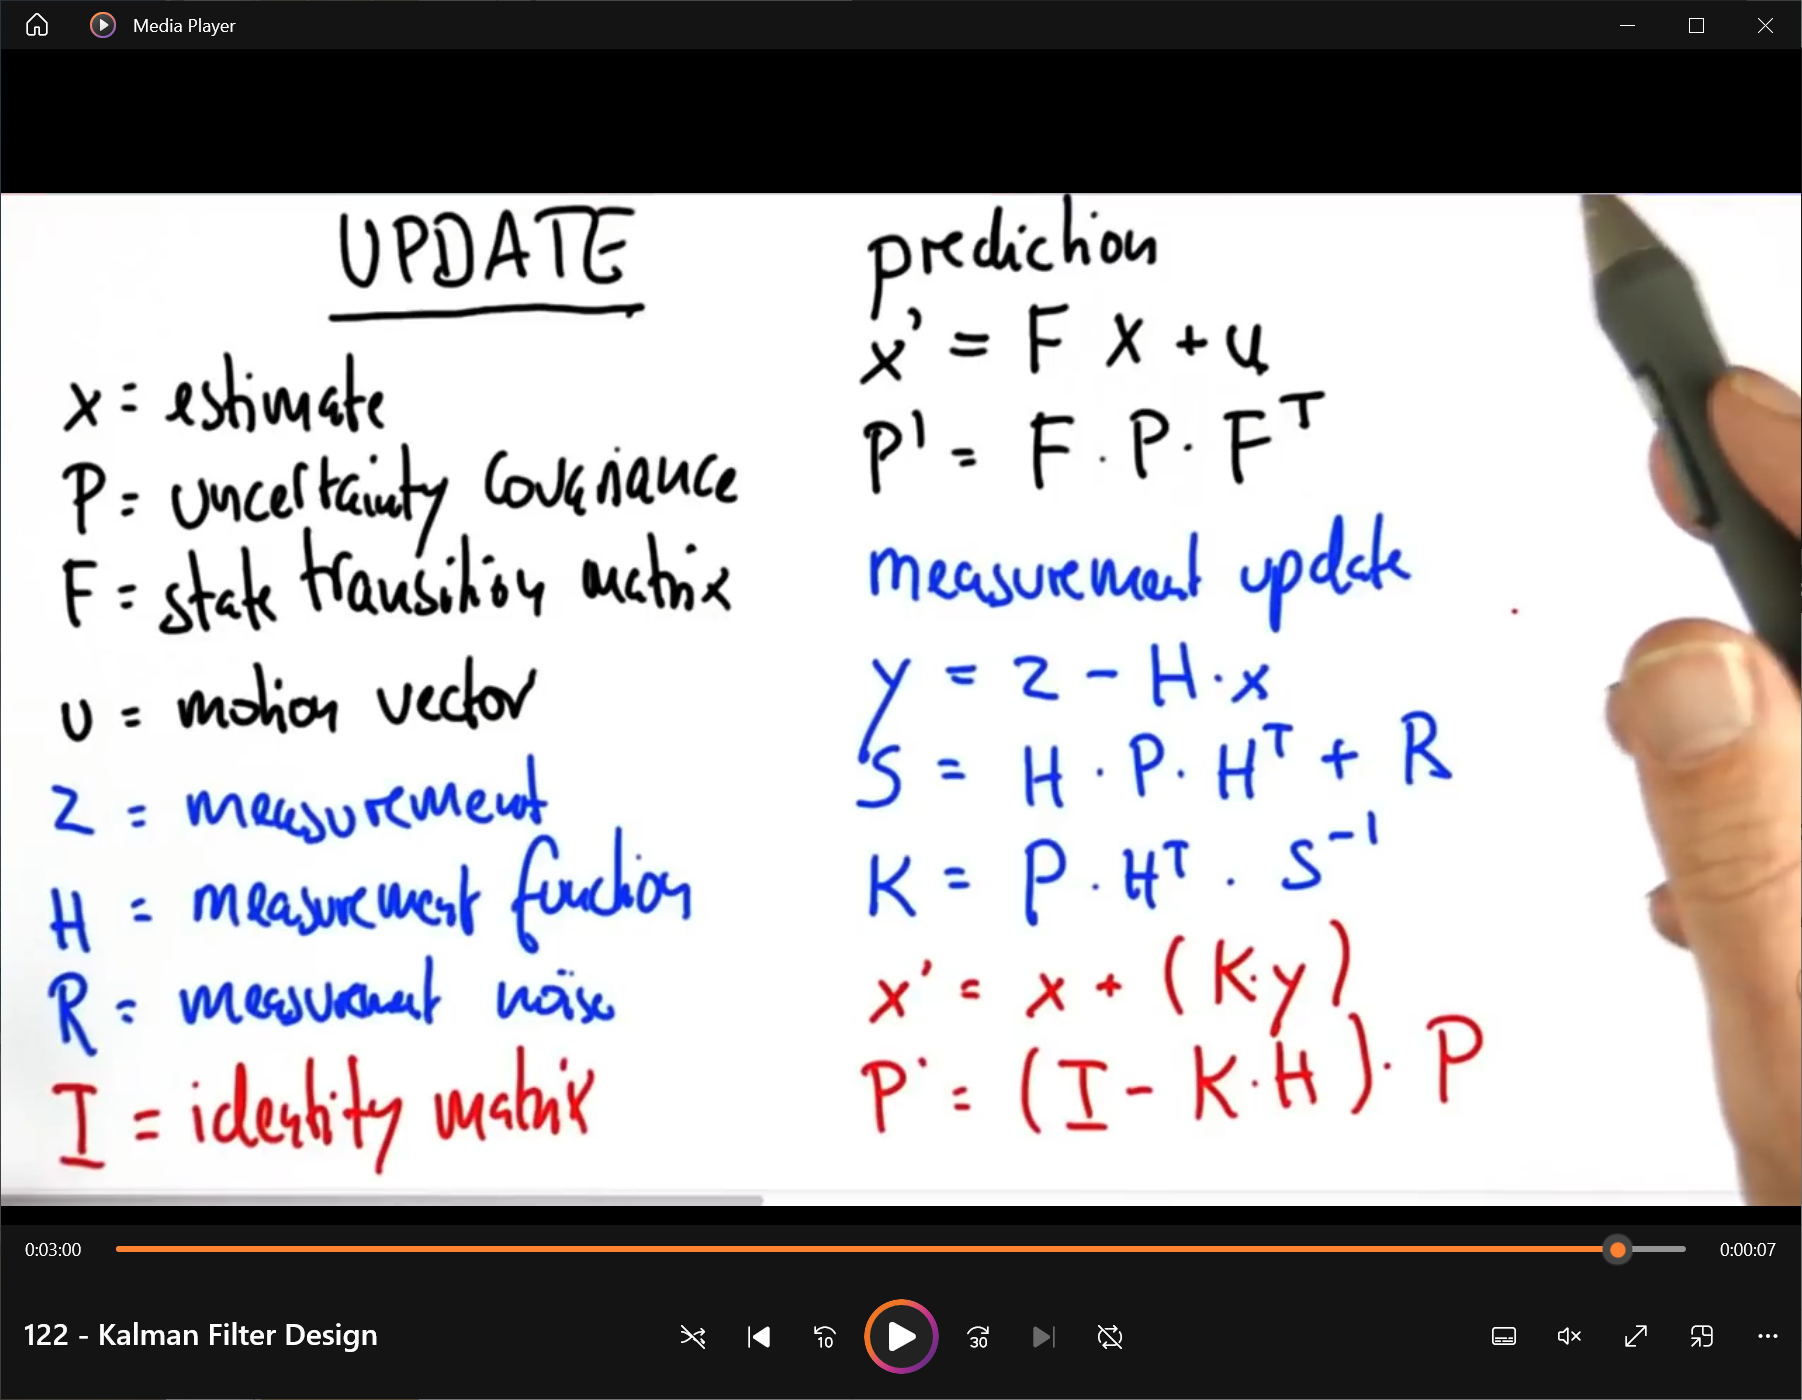 Media Player
UPDATE
x = estimate
P = uncertainty covariance
F = state transition matrix
u = motion vector
z = measurement
H = measurement function
R = measurement noise
I = identity matrix
prediction
x' = F x + u
P' = F · P · Fᵀ
measurement update
y = z - H · x
S = H · P · Hᵀ + R
K = P · Hᵀ · S⁻¹
x' = x + (K · y)
P' = (I - K · H) · P
0:03:00
0:00:07
122 - Kalman Filter Design
10
30